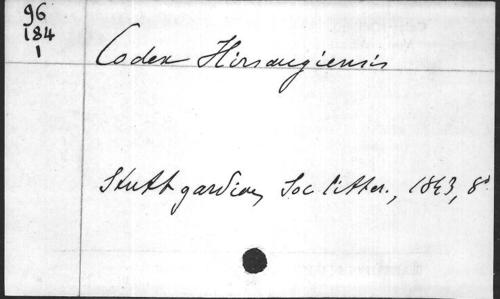 96
184
1
Codex Hirsaugiensis
Stuttgardiae, Soc. litter., 1843, 8º